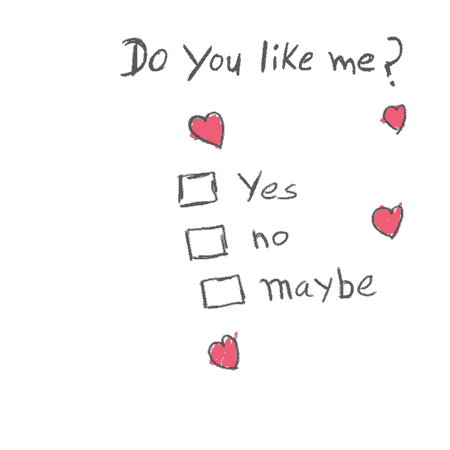 Do you like me?
Yes
no
maybe